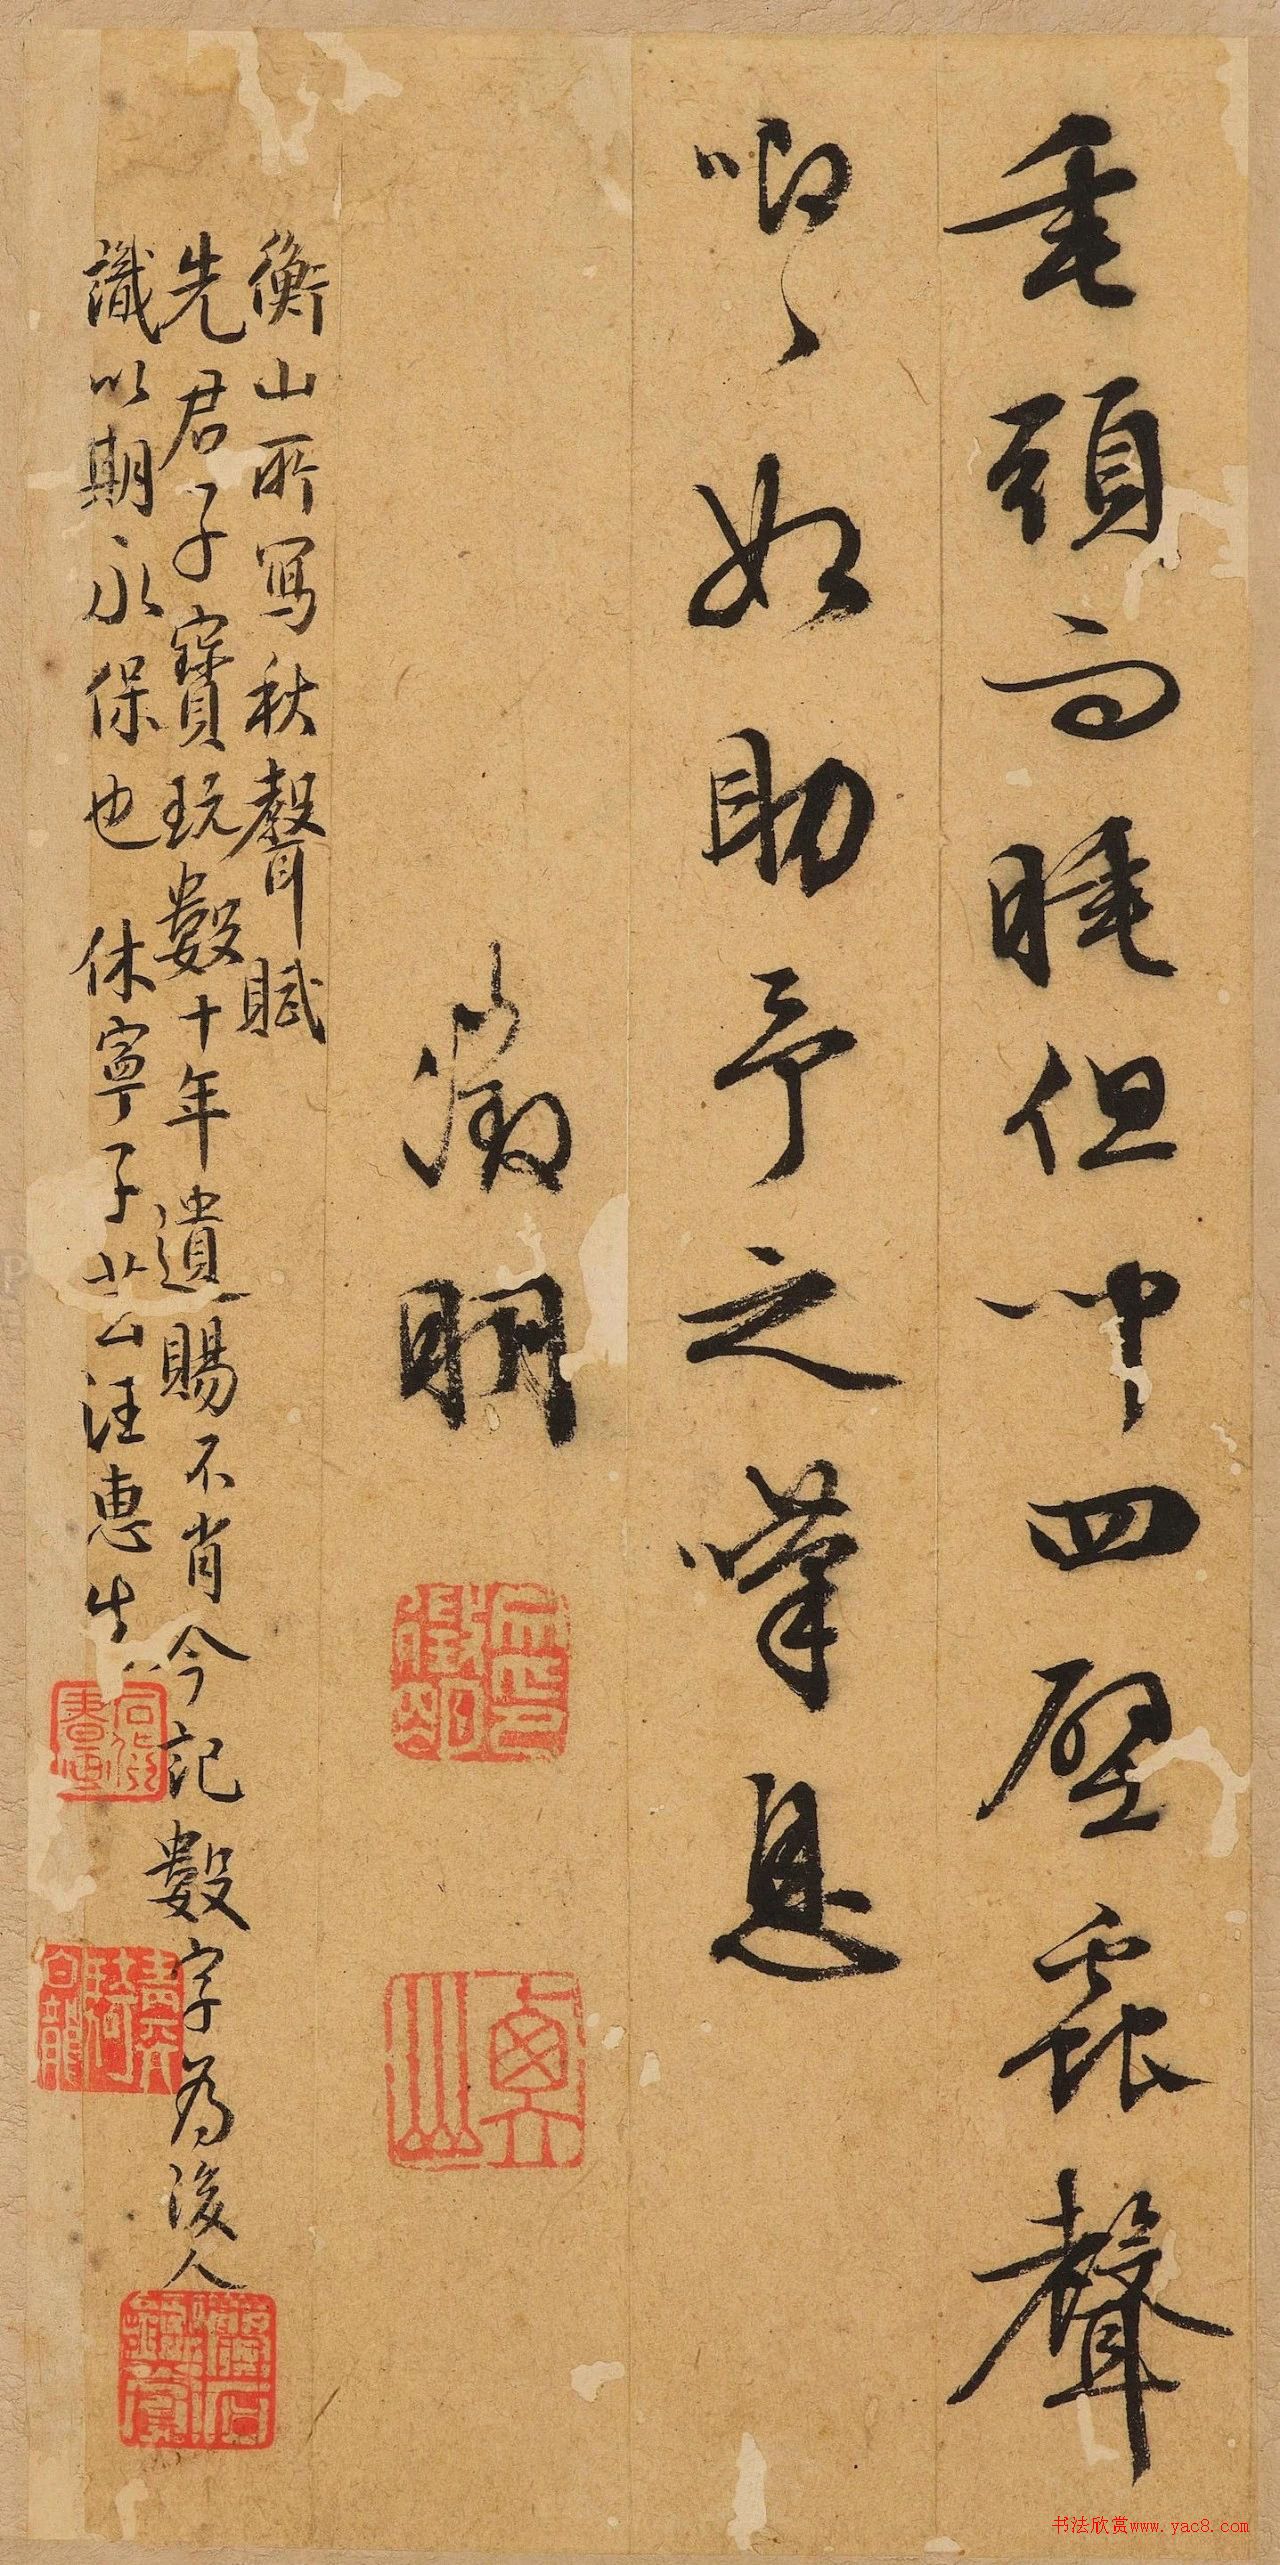 垂頭而睡但聞四壁蟲聲
唧〻如助予之嘆息
徵明
衡山所寫秋聲賦
先君子寶玩數十年遺賜不肖今記數字為後人
識以期永保也 休寧子 汪惠生
文徵明印
衡山
书法欣赏www.yac8.com